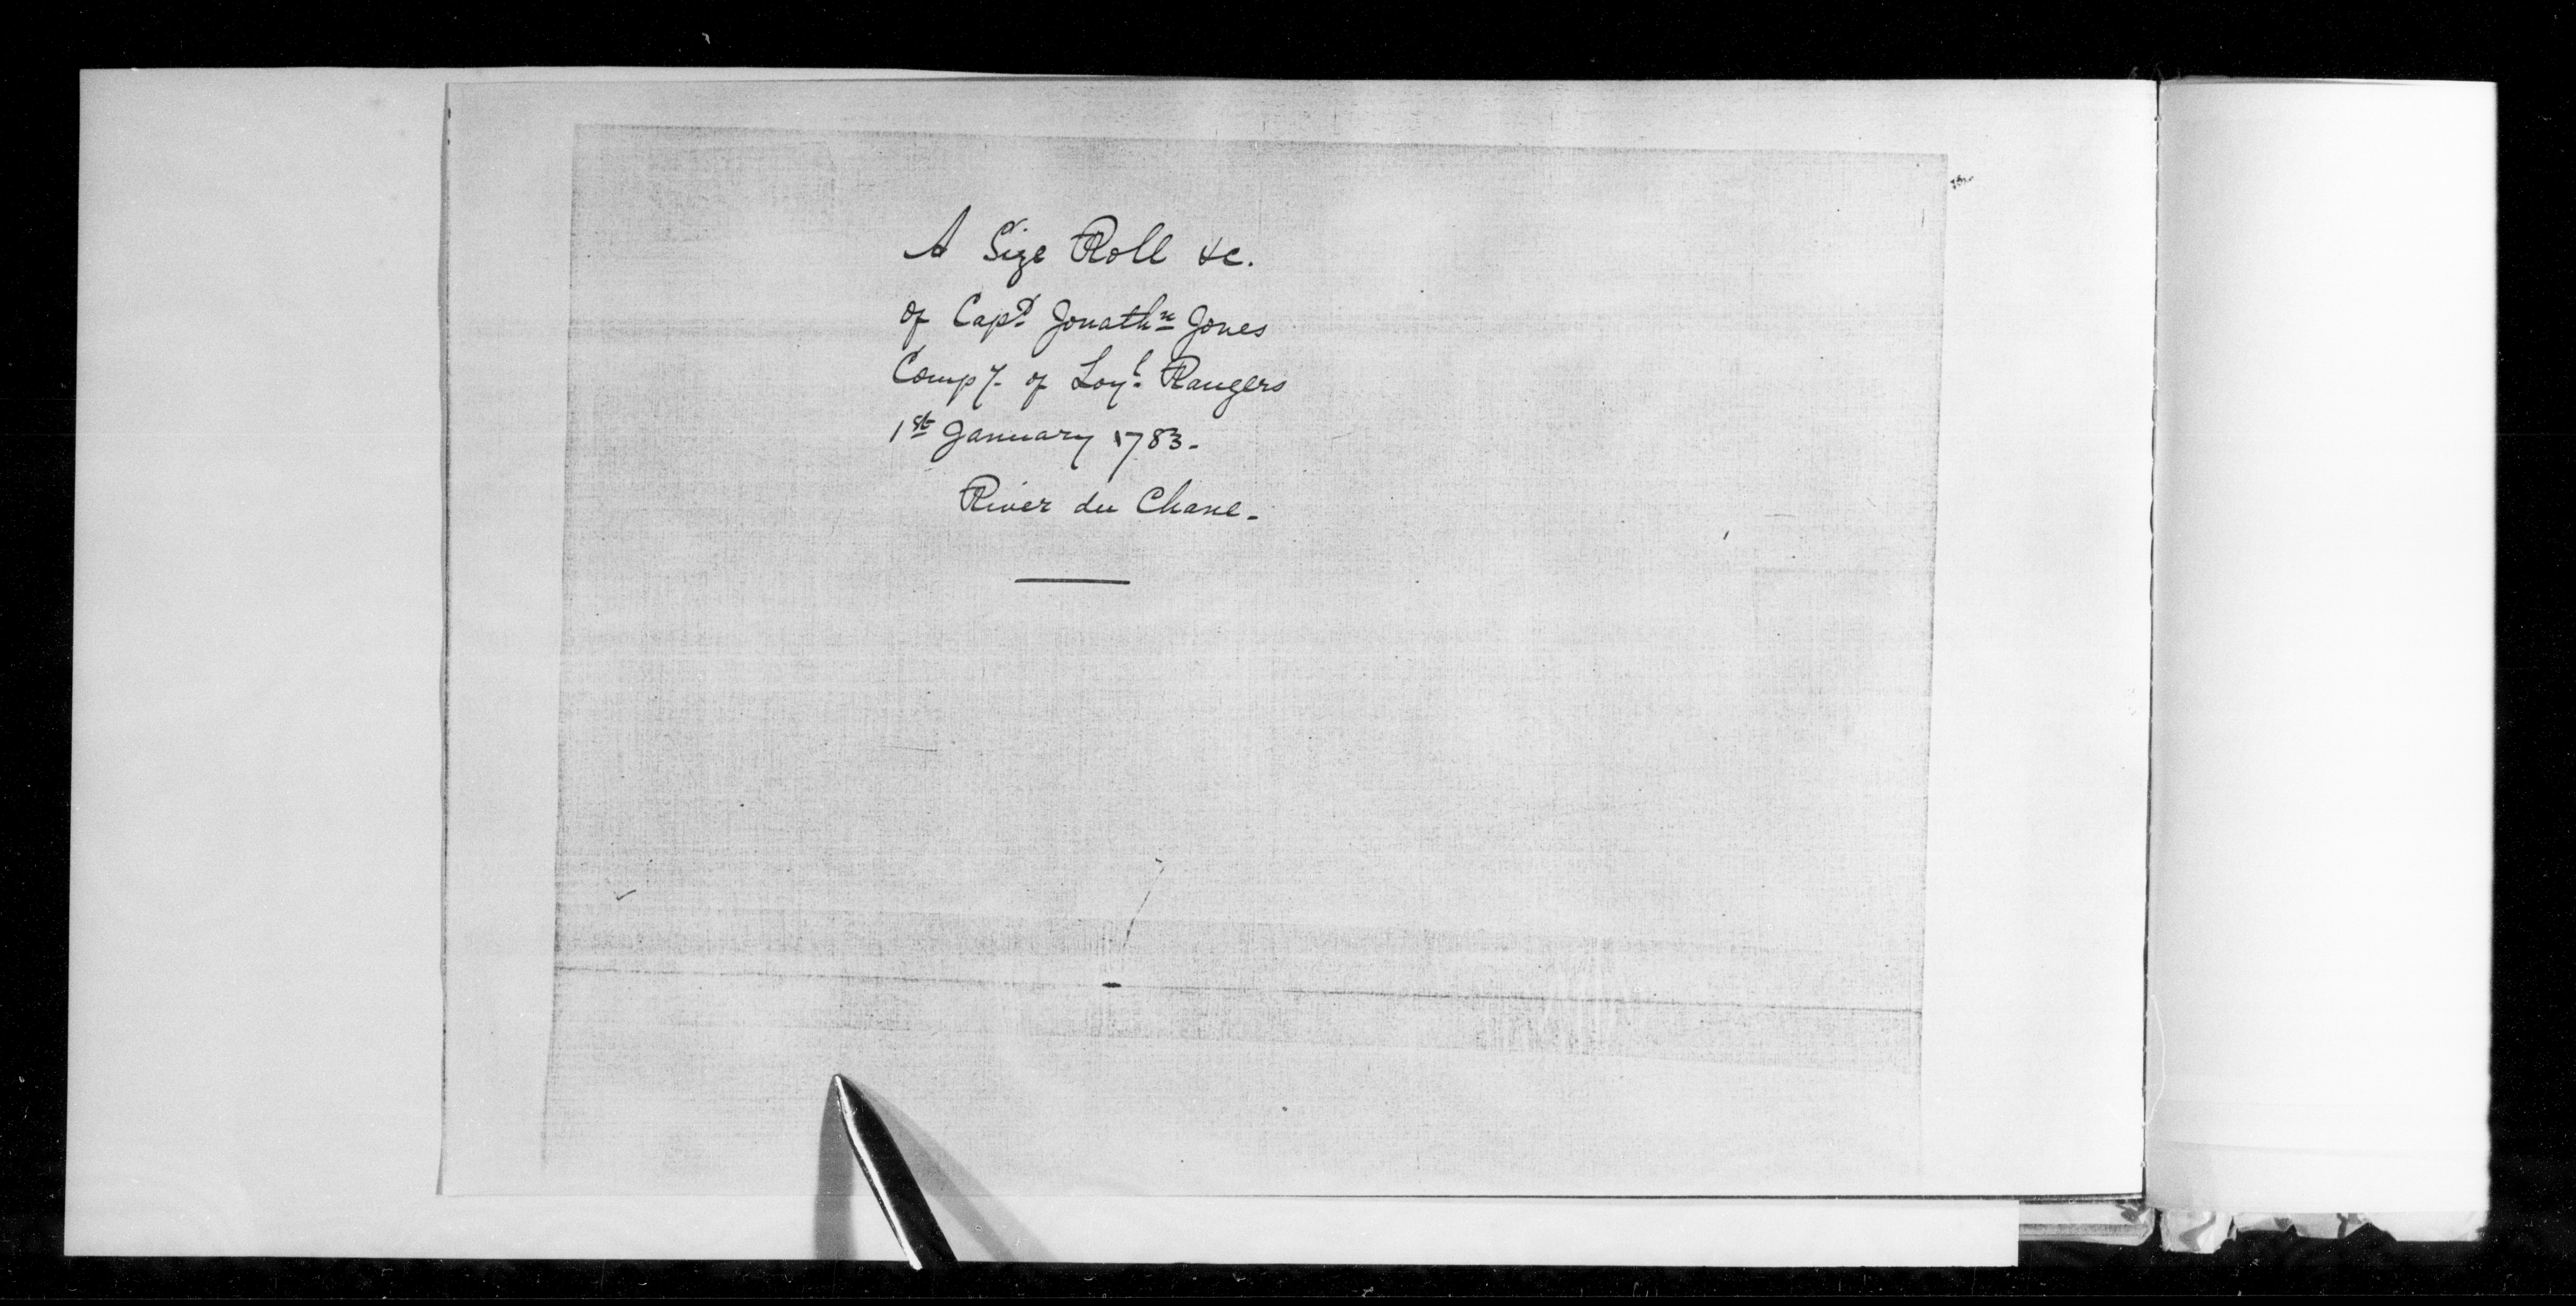 A Size Roll &c.
of Capt. Jonathn Jones
Compy. of Loyl. Rangers
1st January 1783.
River du Chane.